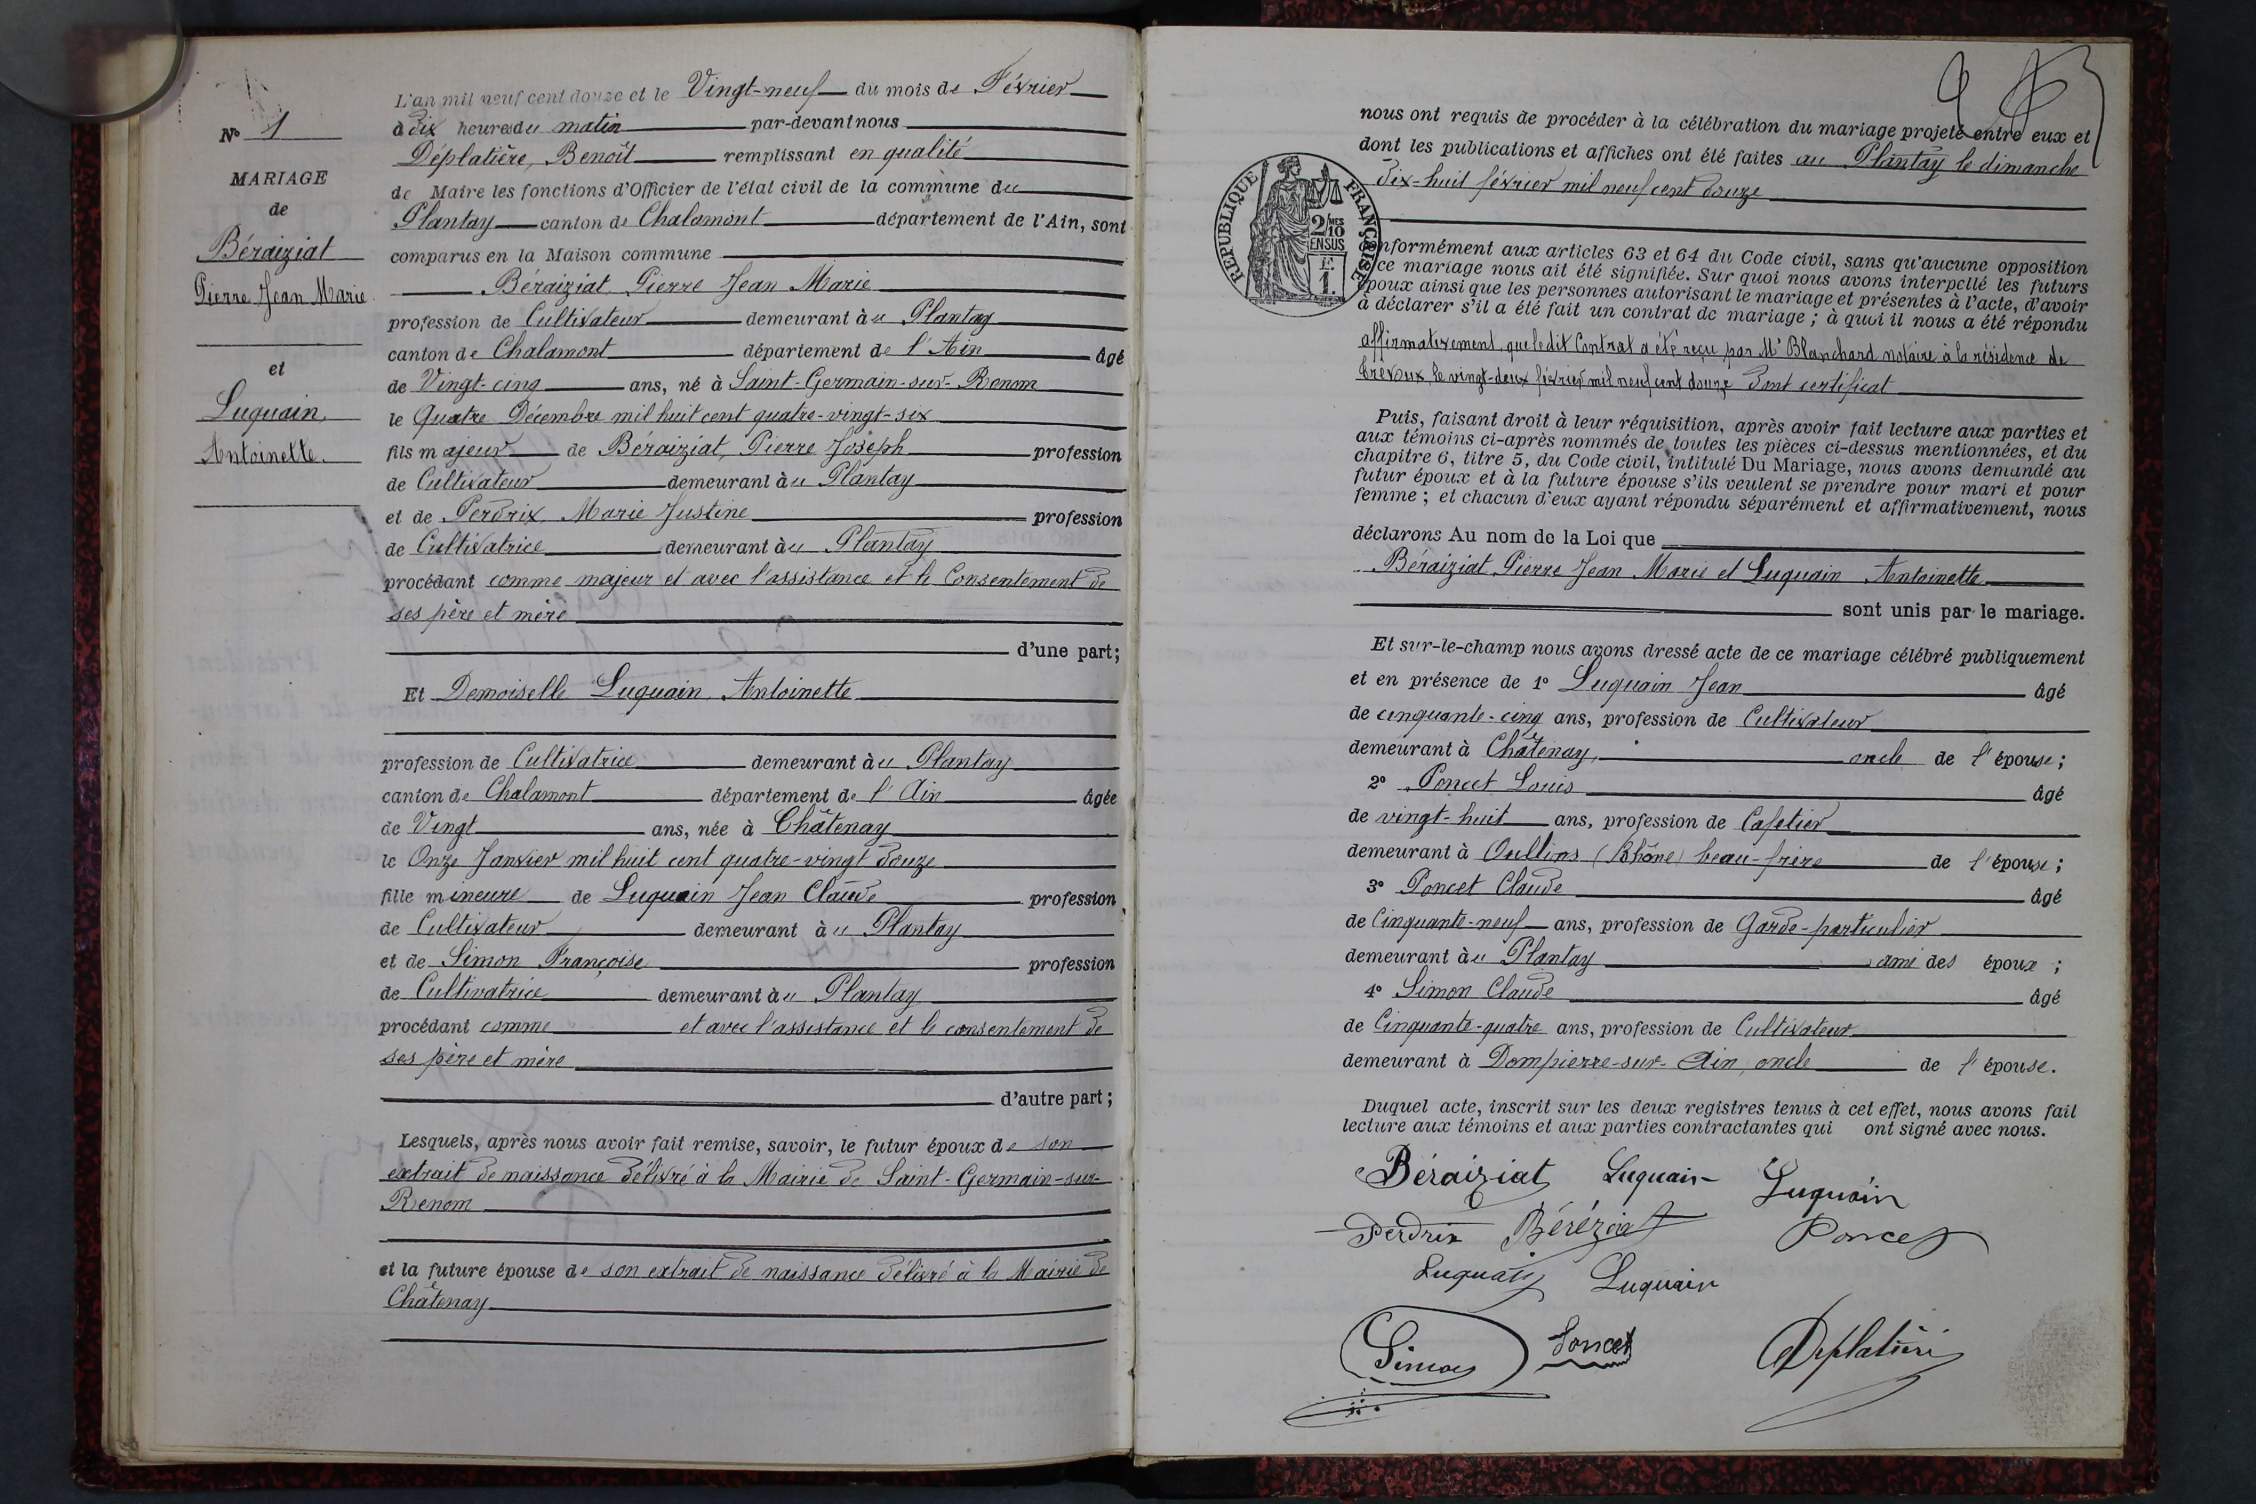 L'an mil neuf cent douze et le Vingt-neuf du mois de Février
à Dix heures du matin par-devant nous
Déplatière, Benoît remplissant en qualité
de Maire les fonctions d'Officier de l'état civil de la commune du
Plantay canton de Chalamont département de l'Ain, sont
comparus en la Maison commune
Béraiziat Pierre Jean Marie
profession de Cultivateur demeurant à u Plantay
canton de Chalamont département de l'Ain âgé
de Vingt-cinq ans, né à Saint-Germain-sur-Renom
le Quatre Décembre mil huit cent quatre-vingt-six
fils majeur de Béraiziat, Pierre Joseph profession
de Cultivateur demeurant à u Plantay
et de Perdrix Marie Justine profession
de Cultivatrice demeurant à u Plantay
procédant comme majeur et avec l'assistance et le Consentement de
ses père et mère
d'une part;
Et Demoiselle Luquain, Antoinette
profession de Cultivatrice demeurant à u Plantay
canton de Chalamont département de l'Ain âgée
de Vingt ans, née à Châtenay
le Onze Janvier mil huit cent quatre-vingt douze
fille mineure de Luquain Jean Claude profession
de Cultivateur demeurant à u Plantay
et de Simon Françoise profession
de Cultivatrice demeurant à u Plantay
procédant comme et avec l'assistance et le consentement de
ses père et mère
d'autre part;
Lesquels, après nous avoir fait remise, savoir, le futur époux de son
extrait de naissance délivré à la Mairie de Saint-Germain-sur-
Renom
et la future épouse de son extrait de naissance délivré à la Mairie de
Châtenay
N° 1
MARIAGE
de
Béraiziat
Pierre Jean Marie
et
Luquain,
Antoinette.
nous ont requis de procéder à la célébration du mariage projeté entre eux et
dont les publications et affiches ont été faites au Plantay le dimanche
Dix-huit février mil neuf cent douze
RÉPUBLIQUE FRANÇAISE
2/10 MES
EN SUS
F.
1.
conformément aux articles 63 et 64 du Code civil, sans qu'aucune opposition
à ce mariage nous ait été signifiée. Sur quoi nous avons interpellé les futurs
époux ainsi que les personnes autorisant le mariage et présentes à l'acte, d'avoir
à déclarer s'il a été fait un contrat de mariage; à quoi il nous a été répondu
affirmativement, que ledit Contrat a été reçu par Me Blanchard notaire à la résidence de
Trévoux, le vingt-deux février mil neuf cent douze Dont certificat
Puis, faisant droit à leur réquisition, après avoir fait lecture aux parties et
aux témoins ci-après nommés de toutes les pièces ci-dessus mentionnées, et du
chapitre 6, titre 5, du Code civil, intitulé Du Mariage, nous avons demandé au
futur époux et à la future épouse s'ils veulent se prendre pour mari et pour
femme; et chacun d'eux ayant répondu séparément et affirmativement, nous
déclarons Au nom de la Loi que
Béraiziat Pierre Jean Marie et Luquain Antoinette
sont unis par le mariage.
Et sur-le-champ nous avons dressé acte de ce mariage célébré publiquement
et en présence de 1° Luquain Jean âgé
de cinquante-cinq ans, profession de Cultivateur
demeurant à Châtenay, oncle de l'épouse;
2° Poncet Louis âgé
de vingt-huit ans, profession de Cafetier
demeurant à Oullins (Rhône) beau-frère de l'épouse;
3° Poncet Claude âgé
de Cinquante-neuf ans, profession de Garde-particulier
demeurant à u Plantay ami des époux;
4° Simon Claude âgé
de Cinquante-quatre ans, profession de Cultivateur
demeurant à Dompierre-sur-Ain, oncle de l'épouse.
Duquel acte, inscrit sur les deux registres tenus à cet effet, nous avons fait
lecture aux témoins et aux parties contractantes qui ont signé avec nous.
Béraiziat Luquain Luquain
Perdrix Béréziat Poncet
Luquain Luquain
Simon Poncet Déplatière